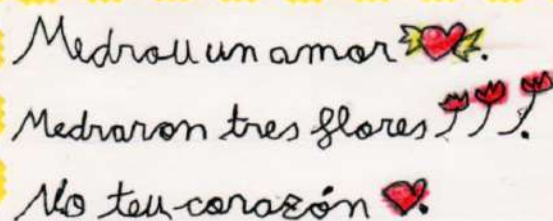 Medrou un amor.
Medraron tres flores.
No teu corazón.